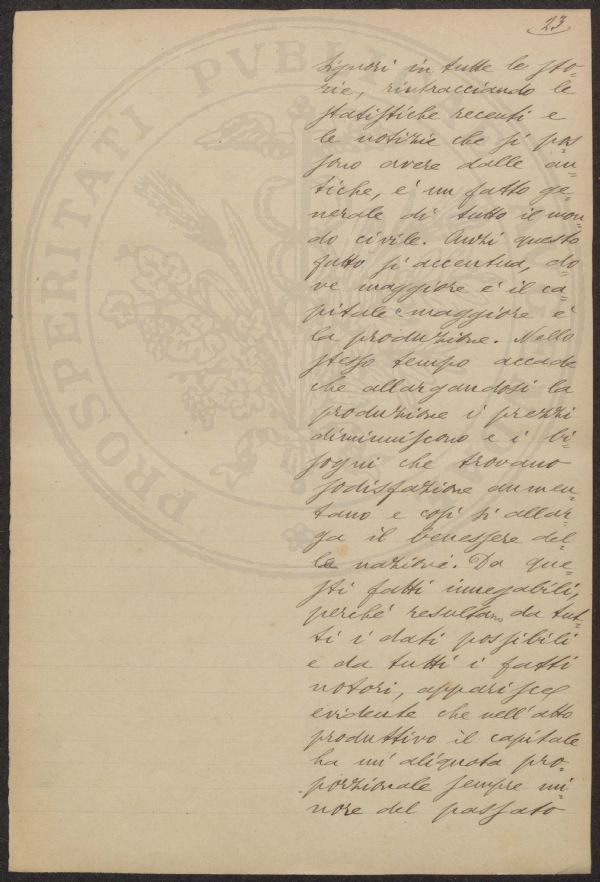 23
Signori in tutte le sto-
rie, rintracciando le
statistiche recenti e
le notizie che si pos
sono avere dalle an-
tiche, è un fatto ge-
nerale di tutto il mon-
do civile. Anzi questo
fatto si accentua, do-
ve maggiore è il ca-
pitale e maggiore è
la produzione. Nello
stesso tempo accade
che allargandosi la
produzione i prezzi
diminuiscono e i bi-
sogni che trovano
sodisfazione aumen-
tano e così si allar-
ga il benessere del-
le nazioni. Da que-
sti fatti innegabili,
perché resultano da tut-
ti i dati possibili
e da tutti i fatti
notori, apparisce
evidente che nell'atto
produttivo il capitale
ha un'aliquota pro-
porzionale sempre mi-
nore del passato
PROSPERITATI PVBLI